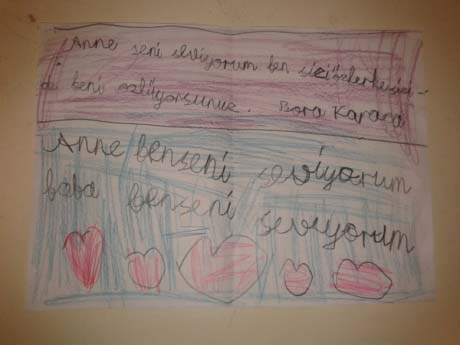 Anne seni seviyorum ben
de beni özlüyorsunuz. Bora Karaca
Anne benseni seviyorum
baba benseni seviyorum